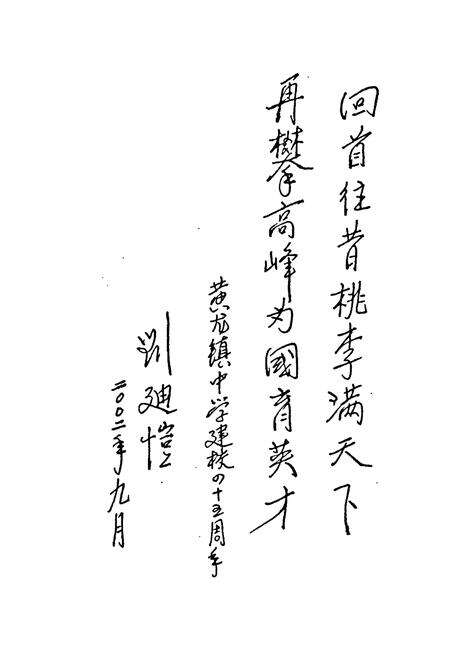 回首往昔桃李满天下
再攀高峰为國育英才
黄龙镇中学建校四十五周年
刘迪恺
二〇〇二年九月